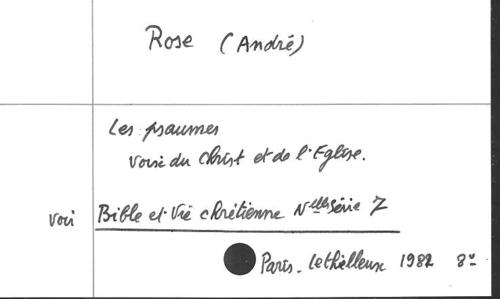 Rose (André)
Les psaumes
Voix du Christ et de l'Eglise.
voir Bible et Vie chrétienne Nlle série 7
Paris. Lethielleux 1982 8º